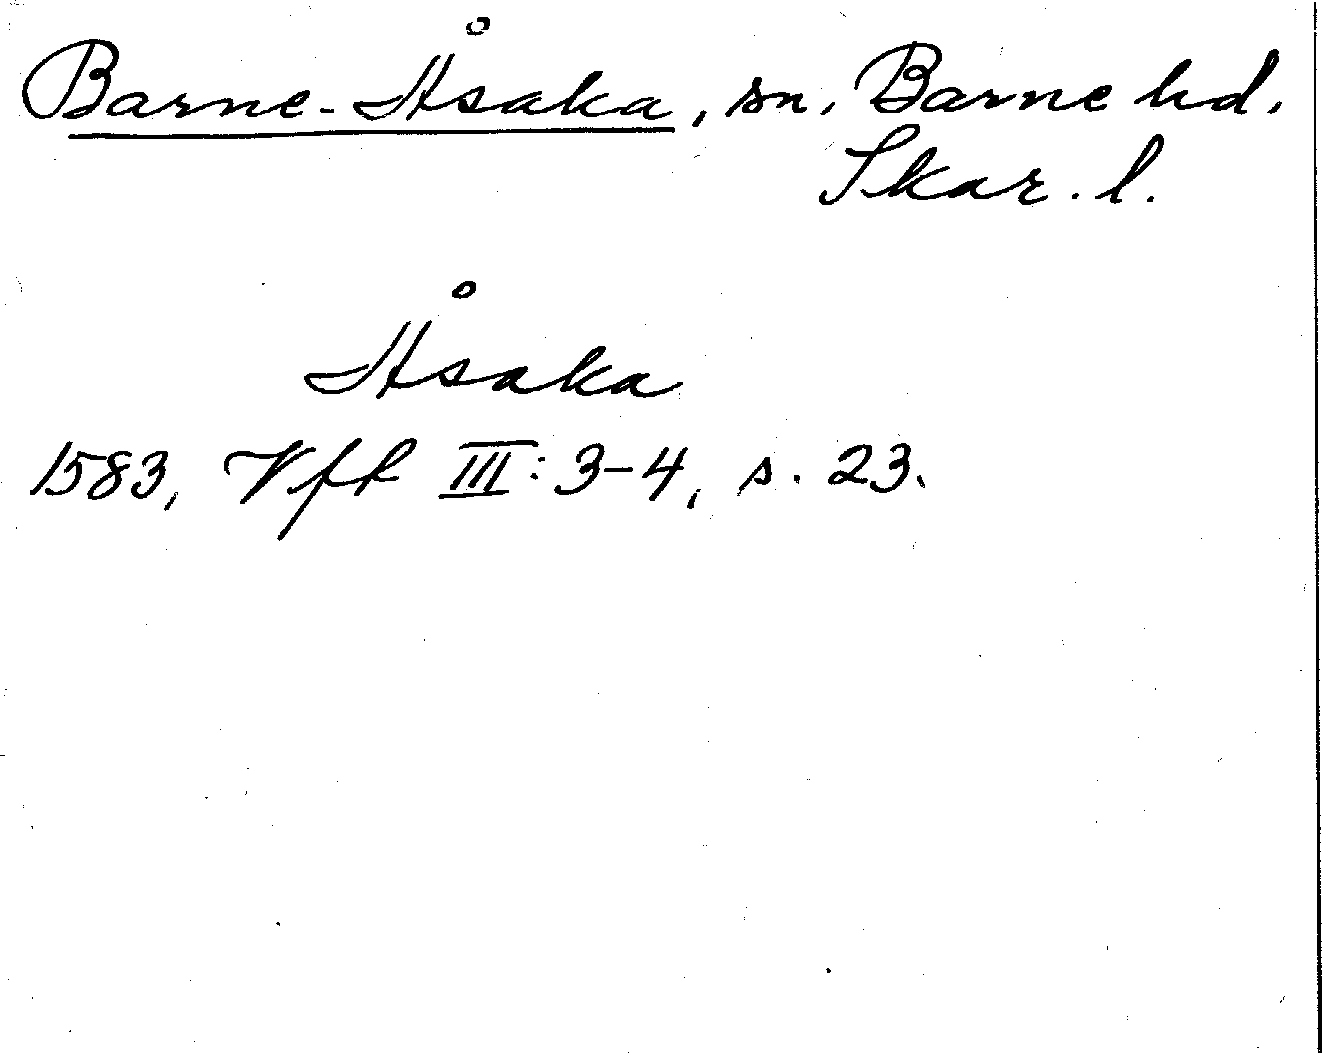 Barne-Åsaka, sn, Barne hd.
Skar. l.
Åsaka
1583, Vff III: 3-4, s. 23.